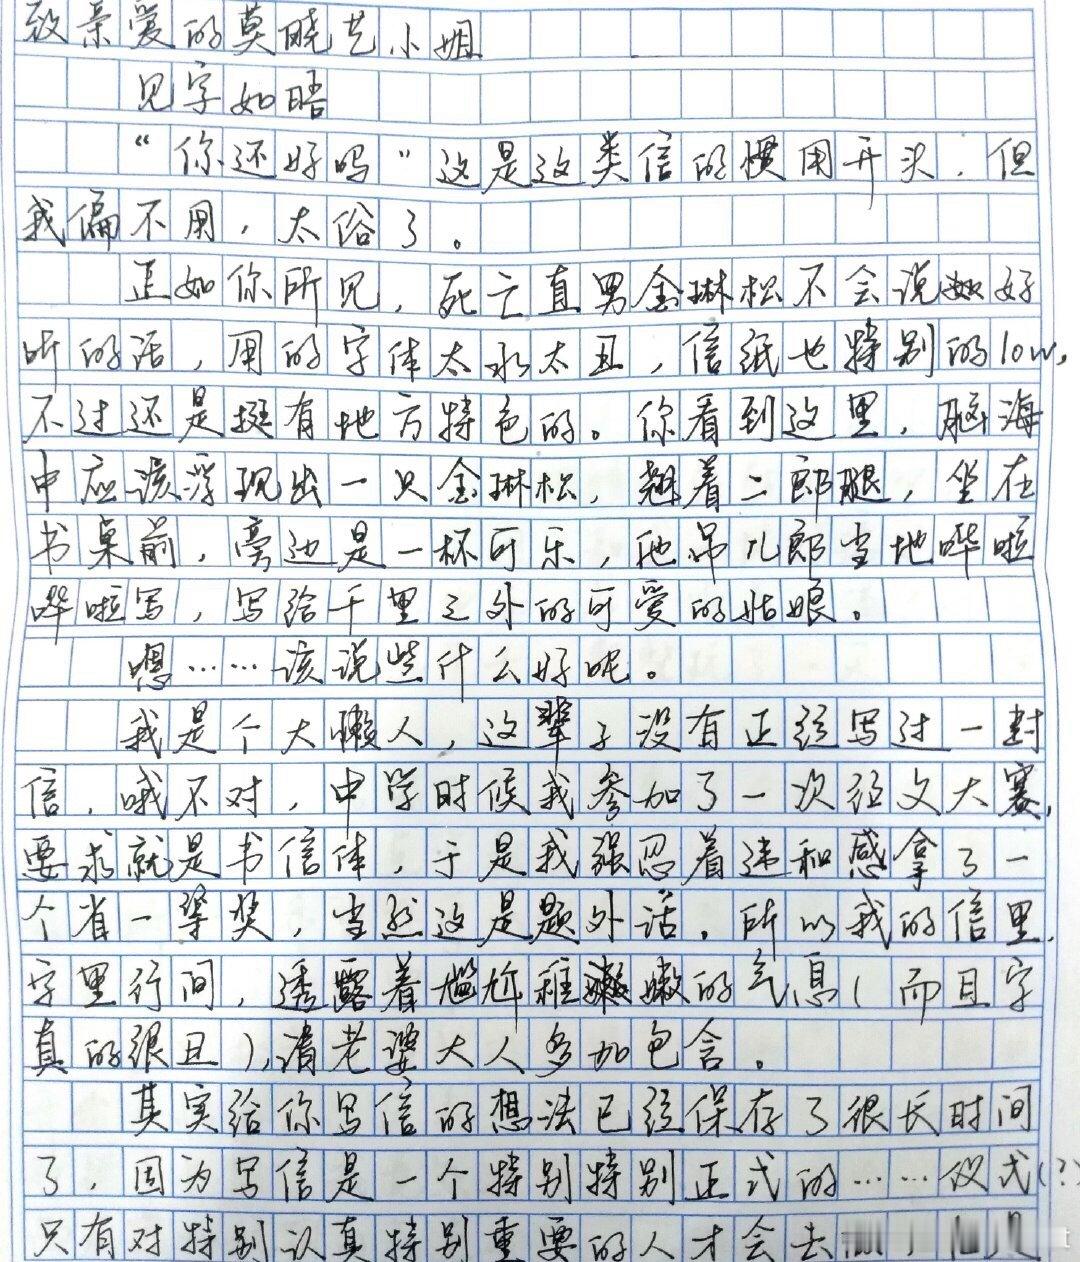 致亲爱的莫晓艺小姐
见字如晤
“你还好吗”这是这类信的惯用开头，但
我偏不用，太俗了。
正如你所见，死亡直男金琳松不会说好
听的话，用的字体太水太丑，信纸也特别的low，
不过还是挺有地方特色的。你看到这里，脑海
中应该浮现出一只金琳松，翘着二郎腿，坐在
书桌前，旁边是一杯可乐，他吊儿郎当地哗啦
哗啦写，写给千里之外的可爱的姑娘。
嗯……该说些什么好呢。
我是个大懒人，这辈子没有正经写过一封
信，哦不对，中学时候我参加了一次征文大赛，
要求就是书信体，于是我强忍着违和感拿了一
个省一等奖，当然这是题外话。所以我的信里，
字里行间，透露着尴尬稚嫩的气息（而且字
真的很丑），请老婆大人多加包含。
其实给你写信的想法已经保存了很长时间
了，因为写信是一个特别特别正式的……仪式（？）
只有对特别认真特别重要的人才会去